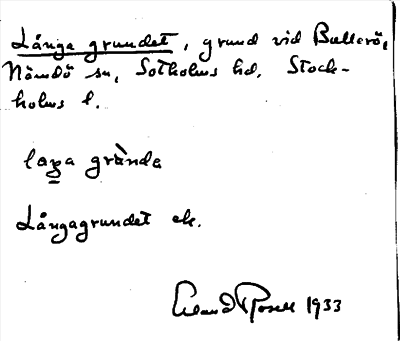 Långa grundet, grund vid Bullerö,
Nämdö sn, Sotholms hd, Stock-
holms l.
laŋa grùndə
Långagrundet ek.
Erland Rosell 1933